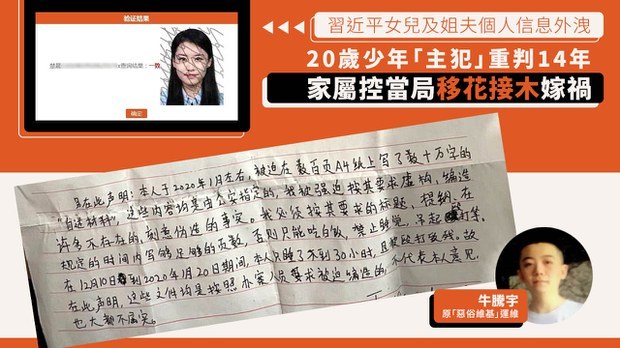 验证结果
查询结果：一致
确定
習近平女兒及姐夫個人信息外洩
20歲少年「主犯」重判14年
家屬控當局移花接木嫁禍
另在此声明：本人于2020年1月左右，被迫在数百页A4纸上写了数十万字的
"自述材料"，这些内容均是由公安指定的，我被强迫按其要求虚构，编造
许多不存在的，刻意伪造的事实。我必须按其要求的标题、提纲，在
规定的时间内写够足够的页数，否则只能吃白饭，禁止睡觉，吊起打等。
在12月10日到2020年1月20日期间，本人只睡了不到30小时，且被殴打致残。故
在此声明，这些文件均是按照办案人员要求被迫编造的，不代表本人意见，
也大都不属实。
牛騰宇
原「惡俗維基」運維